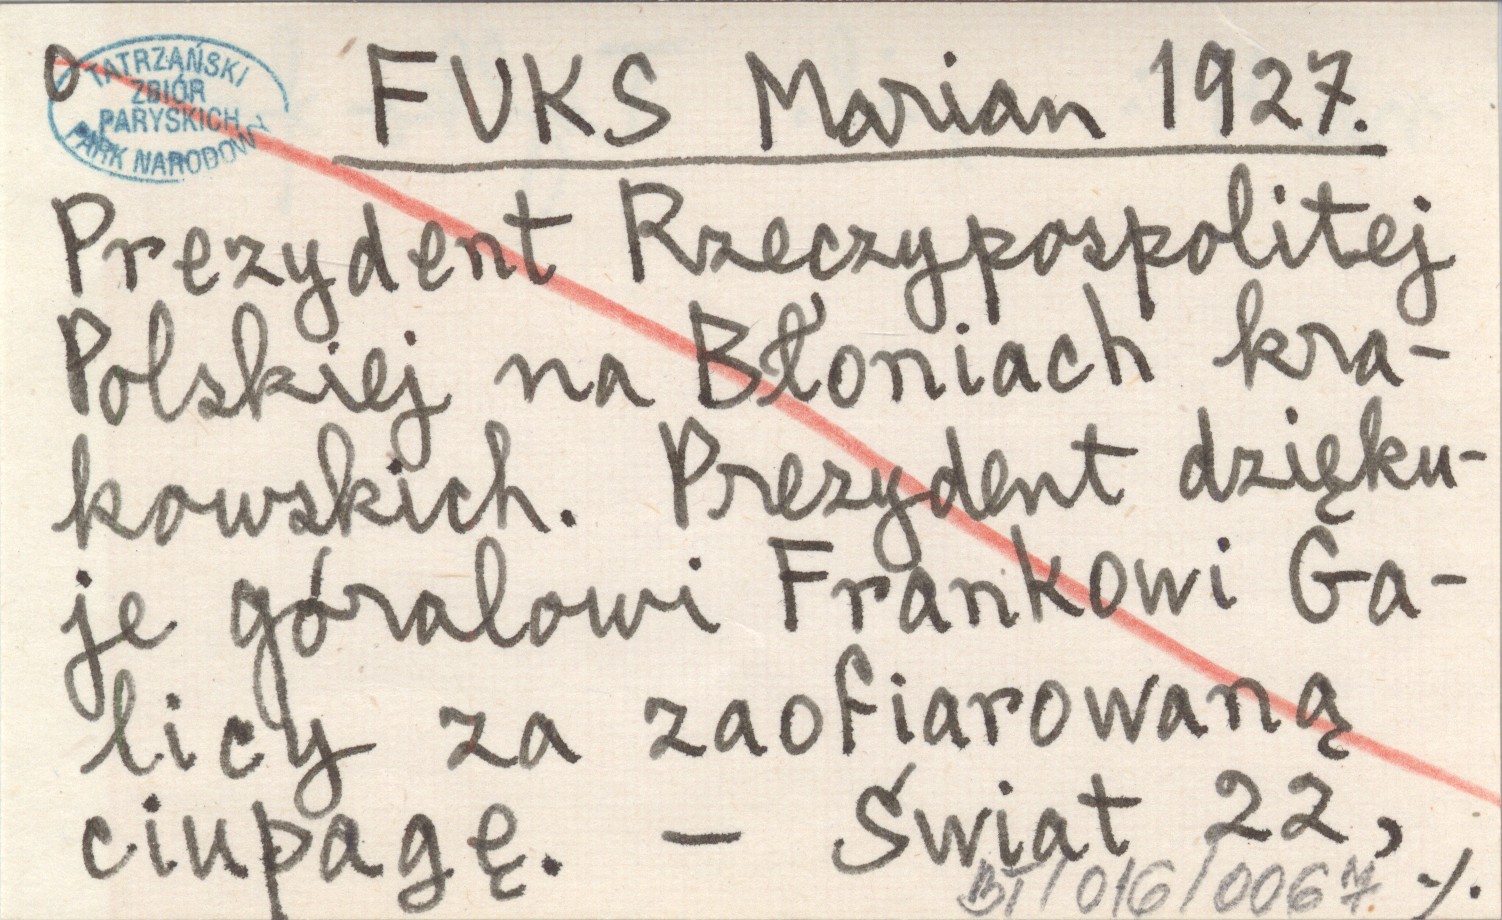 O
TATRZAŃSKI
ZBIÓR
PARYSKICH
PARK NARODOWY
FUKS Marian 1927.
Prezydent Rzeczypospolitej
Polskiej na Błoniach kra-
kowskich. Prezydent dzięku-
je góralowi Frankowi Ga-
licy za zaofiarowaną
ciupagę. — Świat 22,
BI/016/0067 ./.